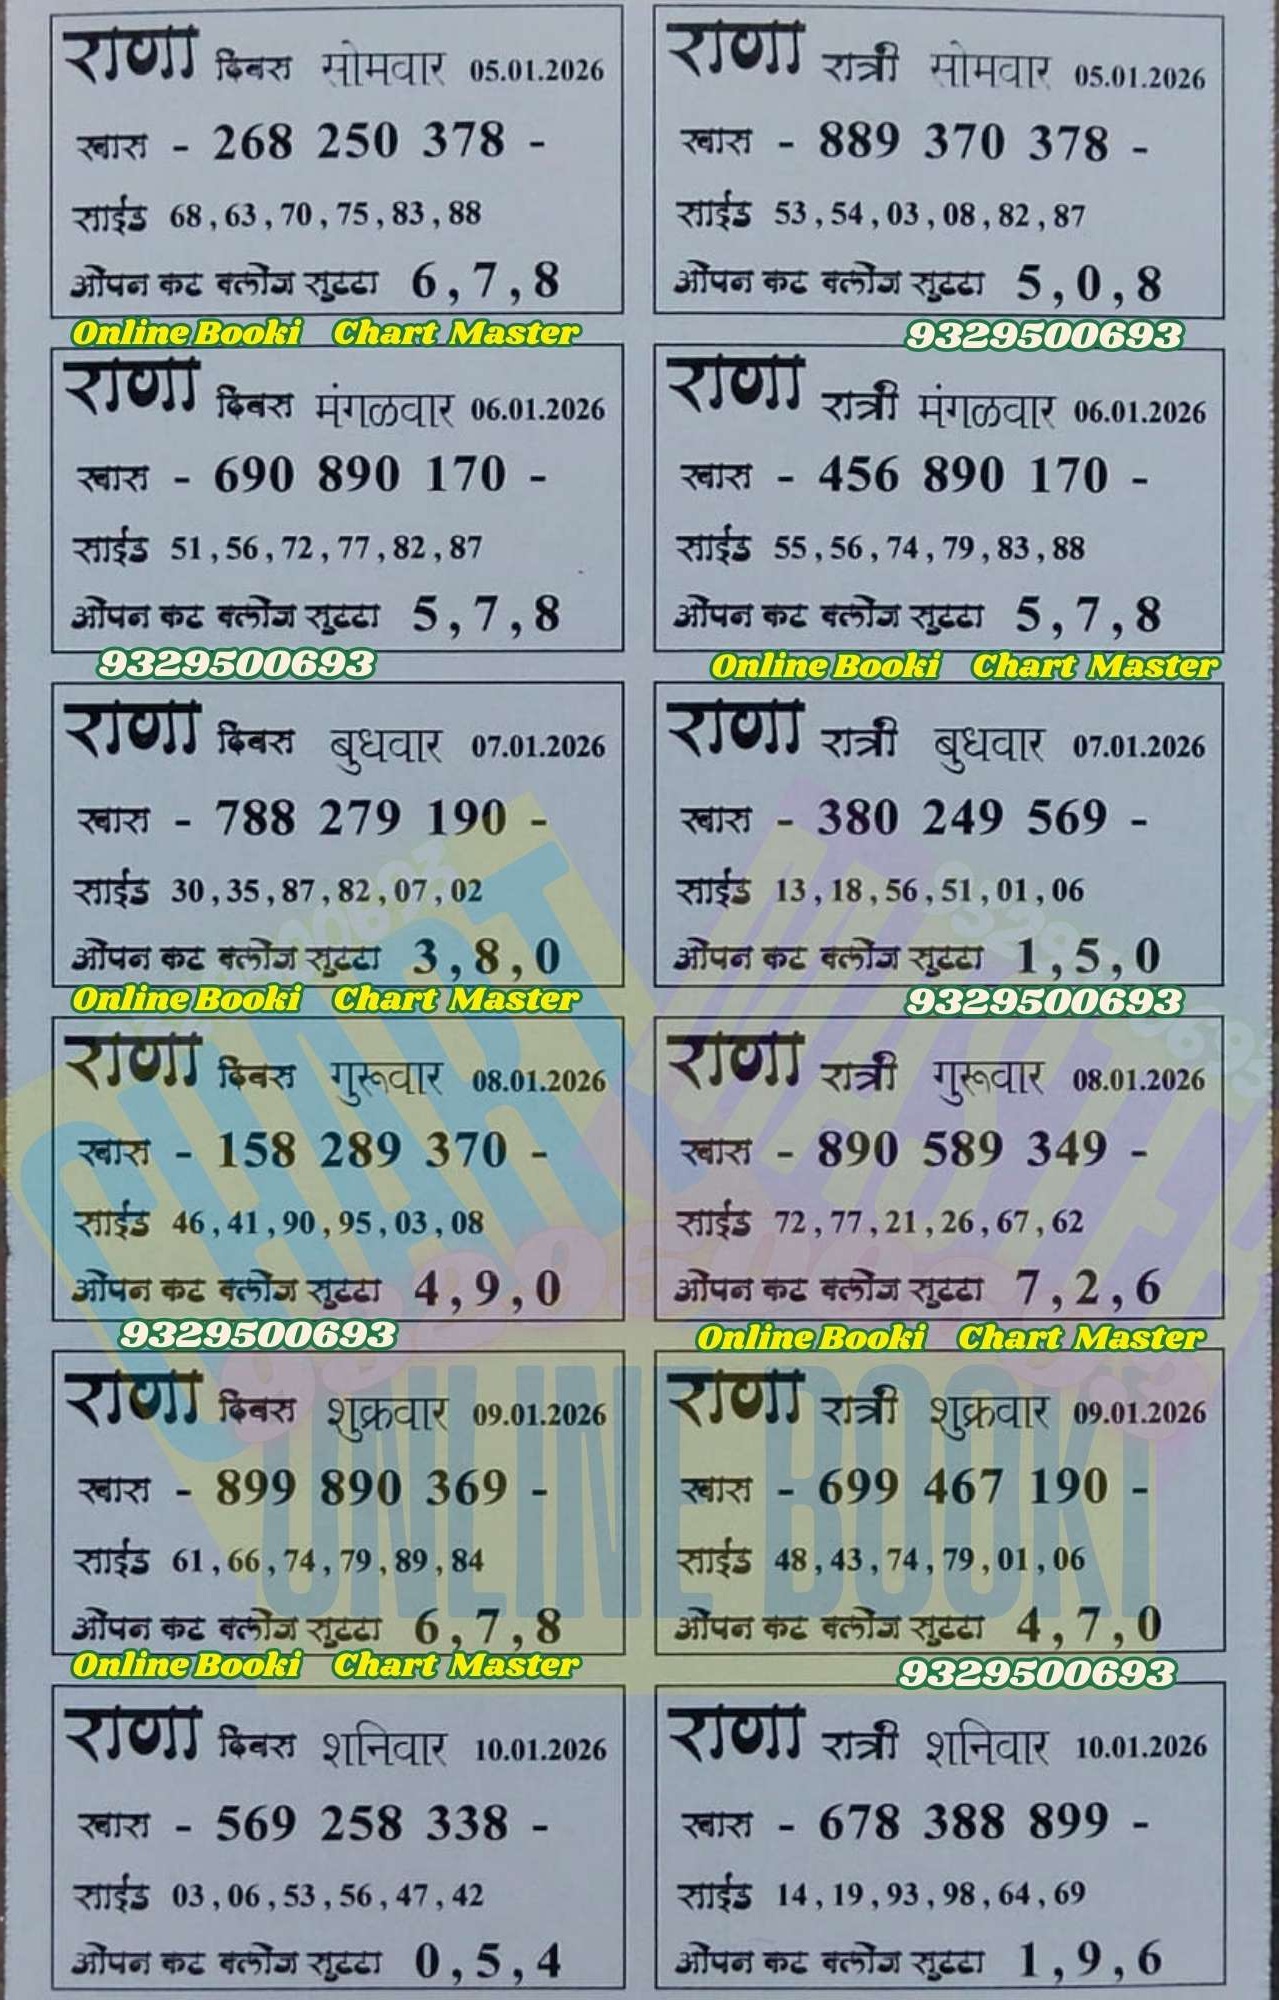 राणा दिवस सोमवार 05.01.2026
खास - 268 250 378 -
साईड 68, 63, 70, 75, 83, 88
ओपन कट क्लोज सुटटा 6, 7, 8
Online Booki Chart Master
राणा रात्री सोमवार 05.01.2026
खास - 889 370 378 -
साईड 53, 54, 03, 08, 82, 87
ओपन कट क्लोज सुटटा 5, 0, 8
9329500693
राणा दिवस मंगळवार 06.01.2026
खास - 690 890 170 -
साईड 51, 56, 72, 77, 82, 87
ओपन कट क्लोज सुटटा 5, 7, 8
9329500693
राणा रात्री मंगळवार 06.01.2026
खास - 456 890 170 -
साईड 55, 56, 74, 79, 83, 88
ओपन कट क्लोज सुटटा 5, 7, 8
Online Booki Chart Master
राणा दिवस बुधवार 07.01.2026
खास - 788 279 190 -
साईड 30, 35, 87, 82, 07, 02
ओपन कट क्लोज सुटटा 3, 8, 0
Online Booki Chart Master
राणा रात्री बुधवार 07.01.2026
खास - 380 249 569 -
साईड 13, 18, 56, 51, 01, 06
ओपन कट क्लोज सुटटा 1, 5, 0
9329500693
राणा दिवस गुरूवार 08.01.2026
खास - 158 289 370 -
साईड 46, 41, 90, 95, 03, 08
ओपन कट क्लोज सुटटा 4, 9, 0
9329500693
राणा रात्री गुरूवार 08.01.2026
खास - 890 589 349 -
साईड 72, 77, 21, 26, 67, 62
ओपन कट क्लोज सुटटा 7, 2, 6
Online Booki Chart Master
राणा दिवस शुक्रवार 09.01.2026
खास - 899 890 369 -
साईड 61, 66, 74, 79, 89, 84
ओपन कट क्लोज सुटटा 6, 7, 8
Online Booki Chart Master
राणा रात्री शुक्रवार 09.01.2026
खास - 699 467 190 -
साईड 48, 43, 74, 79, 01, 06
ओपन कट क्लोज सुटटा 4, 7, 0
9329500693
राणा दिवस शनिवार 10.01.2026
खास - 569 258 338 -
साईड 03, 06, 53, 56, 47, 42
ओपन कट क्लोज सुटटा 0, 5, 4
राणा रात्री शनिवार 10.01.2026
खास - 678 388 899 -
साईड 14, 19, 93, 98, 64, 69
ओपन कट क्लोज सुटटा 1, 9, 6
CHART MASTER
ONLINE BOOKI